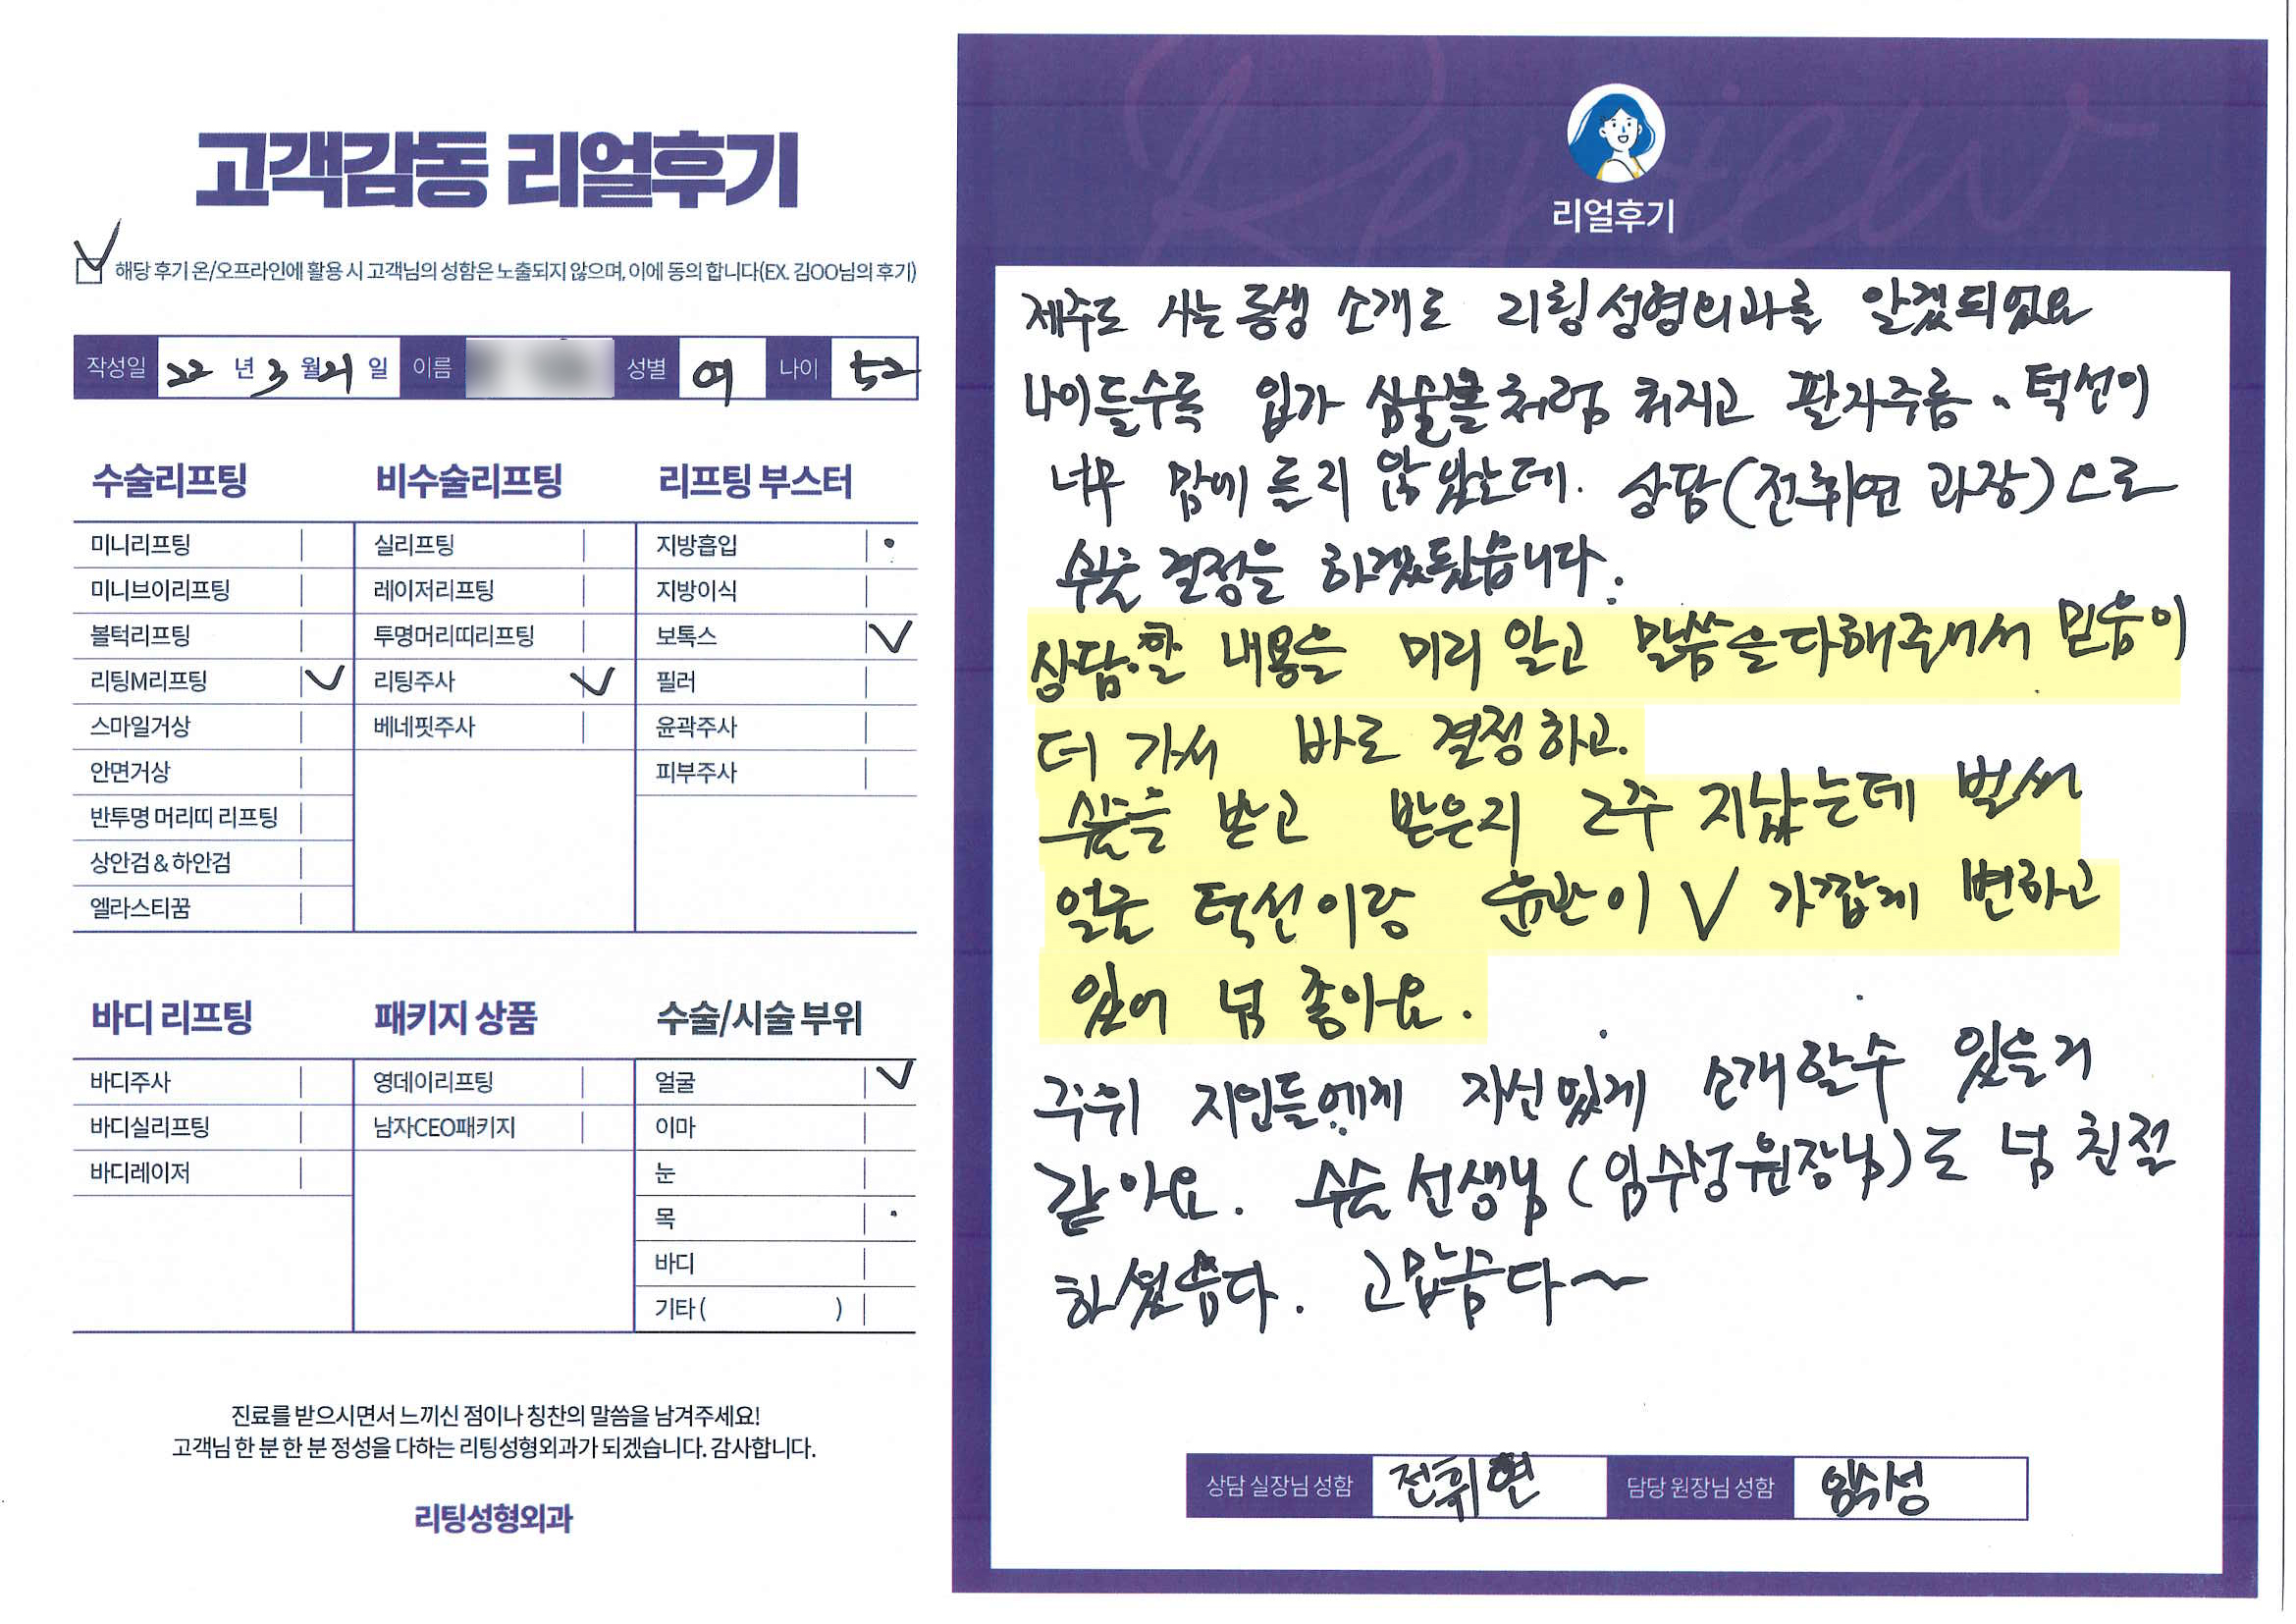 고객감동 리얼후기
해당 후기 온/오프라인에 활용 시 고객님의 성함은 노출되지 않으며, 이에 동의 합니다(EX. 김OO님의 후기)
작성일 22 년 3 월 21 일 이름 성별 여 나이 52
수술리프팅
미니리프팅
미니브이리프팅
볼턱리프팅
리팅M리프팅
스마일거상
안면거상
반투명 머리띠 리프팅
상안검 & 하안검
엘라스티꿈
비수술리프팅
실리프팅
레이저리프팅
투명머리띠리프팅
리팅주사
베네핏주사
리프팅 부스터
지방흡입
지방이식
보톡스
필러
윤곽주사
피부주사
바디 리프팅
바디주사
바디실리프팅
바디레이저
패키지 상품
영데이리프팅
남자CEO패키지
수술/시술 부위
얼굴
이마
눈
목
바디
기타 ( )
진료를 받으시면서 느끼신 점이나 칭찬의 말씀을 남겨주세요!
고객님 한 분 한 분 정성을 다하는 리팅성형외과가 되겠습니다. 감사합니다.
리팅성형외과
Review
리얼후기
제주도 사는 동생 소개로 리팅성형외과를 알겠되었요
나이들수록 입가 심술볼처럼 쳐지고 팔자주름、턱선이
너무 맘에 들지 않았는데. 상담(전휘연 과장)으로
수술 결정을 하겠됐습니다.
상담할 내용을 미리 알고 말씀을 다해주셔서 믿음이
더 가서 바로 결정하고.
수술을 받고 받은지 2주 지났는데 벌써
얼굴 턱선이랑 윤곽이 V 가깝게 변하고
있어 넘 좋아요.
주위 지인들에게 자신있게 소개할수 있을거
같아요. 수술 선생님 (임수성원장님)도 넘 친절
하셨습다. 고맙습다~
상담 실장님 성함 전휘연 담당 원장님 성함 임수성